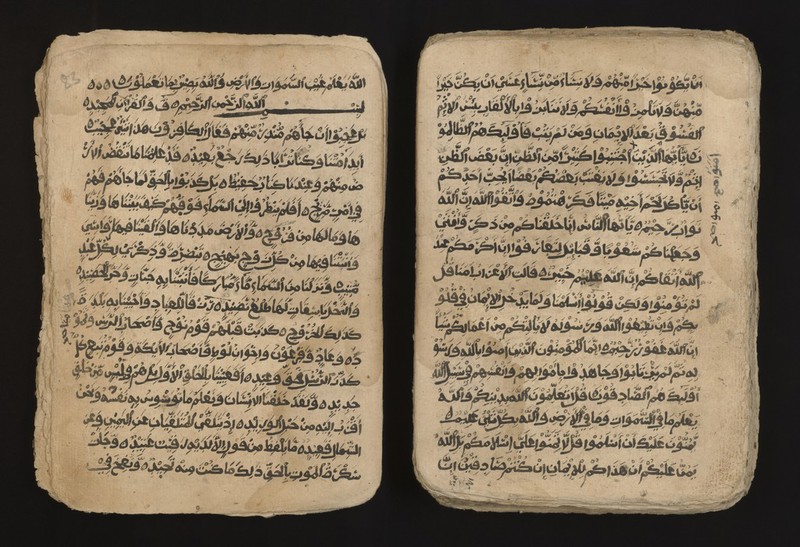 ان يكونوا خيرا منهم ولا نساء من نساء عسى ان يكن خيرا
منهن ولا تلمزوا انفسكم ولا تنابزوا بالالقاب بئس الاسم
الفسوق بعد الايمان ومن لم يتب فاولئك هم الظالمو
ن يا ايها الذين اجتنبوا كثيرا من الظن ان بعض الظن
اثم ولا تجسسوا ولا يغتب بعضكم بعضا ايحب احدكم
ان ياكل لحم اخيه ميتا فكرهتموه واتقوا الله ان الله
تواب رحيم يا ايها الناس انا خلقناكم من ذكر وانثى
وجعلناكم شعوبا وقبائل لتعارفوا ان اكرمكم عند
الله اتقاكم ان الله عليم خبير قالت الاعراب امنا قل
لم تؤمنوا ولكن قولوا اسلمنا ولما يدخل الايمان في قلو
بكم وان تطيعوا الله ورسوله لا يلتكم من اعمالكم شيئا
ان الله غفور رحيم انما المؤمنون الذين امنوا بالله ورسو
له ثم لم يرتابوا وجاهدوا باموالهم وانفسهم في سبيل الله
اولئك هم الصادقون قل اتعلمون الله بدينكم والله
يعلم ما في السموات وما في الارض والله بكل شيء عليم
يمنون عليك ان اسلموا قل لا تمنوا علي اسلامكم بل الله
يمن عليكم ان هداكم للايمان ان كنتم صادقين ان
الله يعلم غيب السموات والارض والله بصير بما تعملون
بسم الله الرحمن الرحيم ق والقران المجيد
بل عجبوا ان جاءهم منذر منهم فقال الكافرون هذا شيء عجيب
ائذا متنا وكنا ترابا ذلك رجع بعيد قد علمنا ما تنقص الار
ض منهم وعندنا كتاب حفيظ بل كذبوا بالحق لما جاءهم فهم
في امر مريج افلم ينظروا الى السماء فوقهم كيف بنيناها وزينا
ها وما لها من فروج والارض مددناها والقينا فيها رواسي
وانبتنا فيها من كل زوج بهيج تبصرة وذكرى لكل عبد
منيب ونزلنا من السماء ماء مباركا فانبتنا به جنات وحب الحصيد
والنخل باسقات لها طلع نضيد رزقا للعباد واحيينا به بلدة
كذلك الخروج كذبت قبلهم قوم نوح واصحاب الرس وثمو
د وعاد وفرعون واخوان لوط واصحاب الايكة وقوم تبع كل
كذب الرسل فحق وعيد افعيينا بالخلق الاول بل هم في لبس من خلق
جديد ولقد خلقنا الانسان ونعلم ما توسوس به نفسه ونحن
اقرب اليه من حبل الوريد اذ يتلقى المتلقيان عن اليمين وعن
الشمال قعيد ما يلفظ من قول الا لديه رقيب عتيد وجاءت
سكرة الموت بالحق ذلك ما كنت منه تحيد ونفخ في